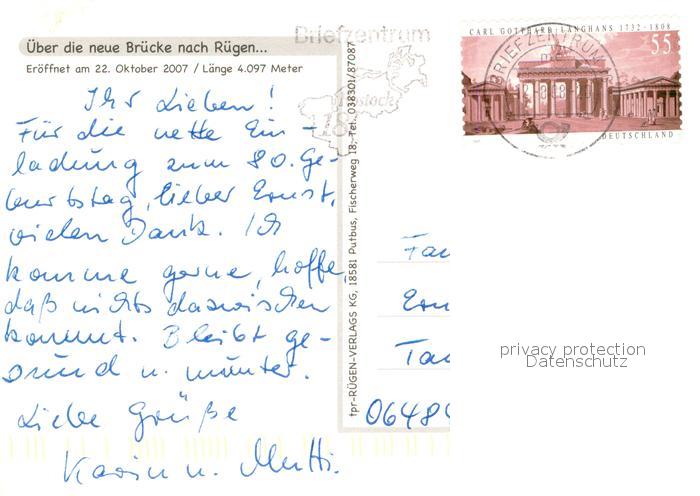 Über die neue Brücke nach Rügen...
Eröffnet am 22. Oktober 2007 / Länge 4.097 Meter
Ihr Lieben!
Für die nette Ein-
ladung zum 80. Ge-
burtstag, lieber Ernst,
vielen Dank. Ich
komme gerne, hoffe,
daß nichts dazwischen
kommt. Bleibt ge-
sund u. munter.
Liebe Grüße
Karin u. Mutti.
tpr-RÜGEN-VERLAGS KG, 18581 Putbus, Fischerweg 18, Tel. 038301/87087
Briefzentrum
Rostock
18
CARL GOTTHARD LANGHANS 1732-1808
55
DEUTSCHLAND
BRIEFZENTRUM
Fa
Ern
Ta
06484
privacy protection
Datenschutz